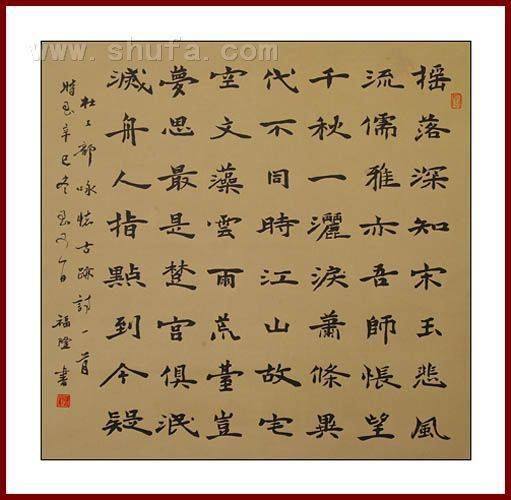 www.shufa.com
搖落深知宋玉悲風
流儒雅亦吾師悵望
千秋一灑淚蕭條異
代不同時江山故宅
空文藻雲雨荒臺豈
夢思最是楚宮俱泯
滅舟人指點到今疑
杜工部咏懷古跡詩一首
時辛巳冬
福書